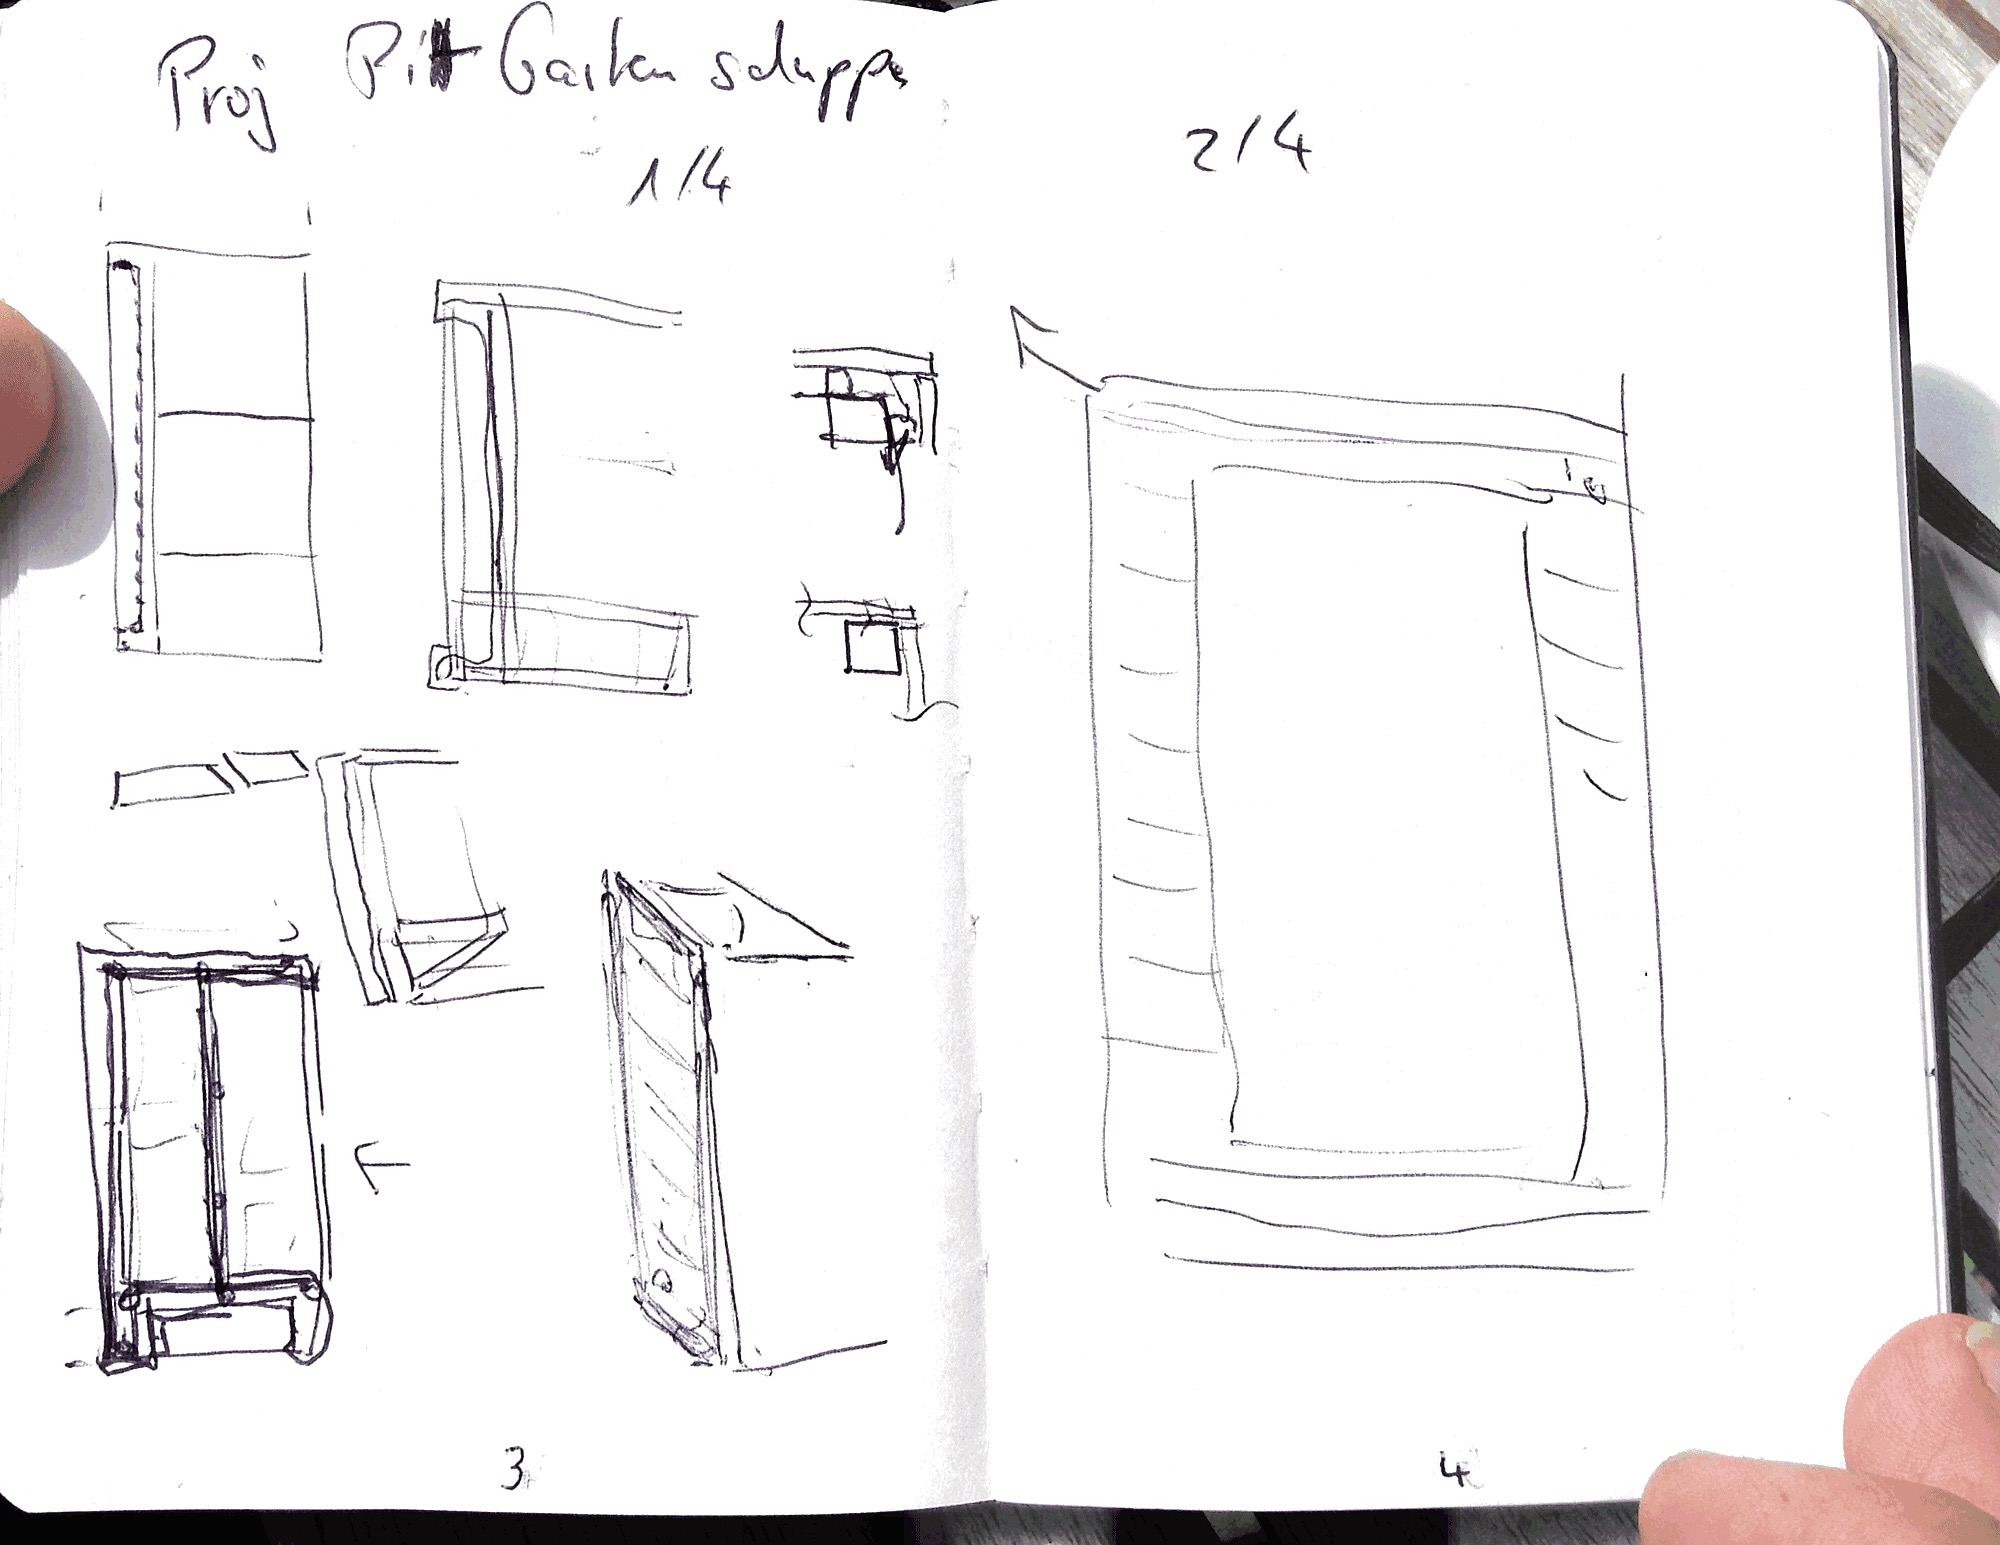 Proj Pitt Garten schuppe
1/4
2/4
3
4